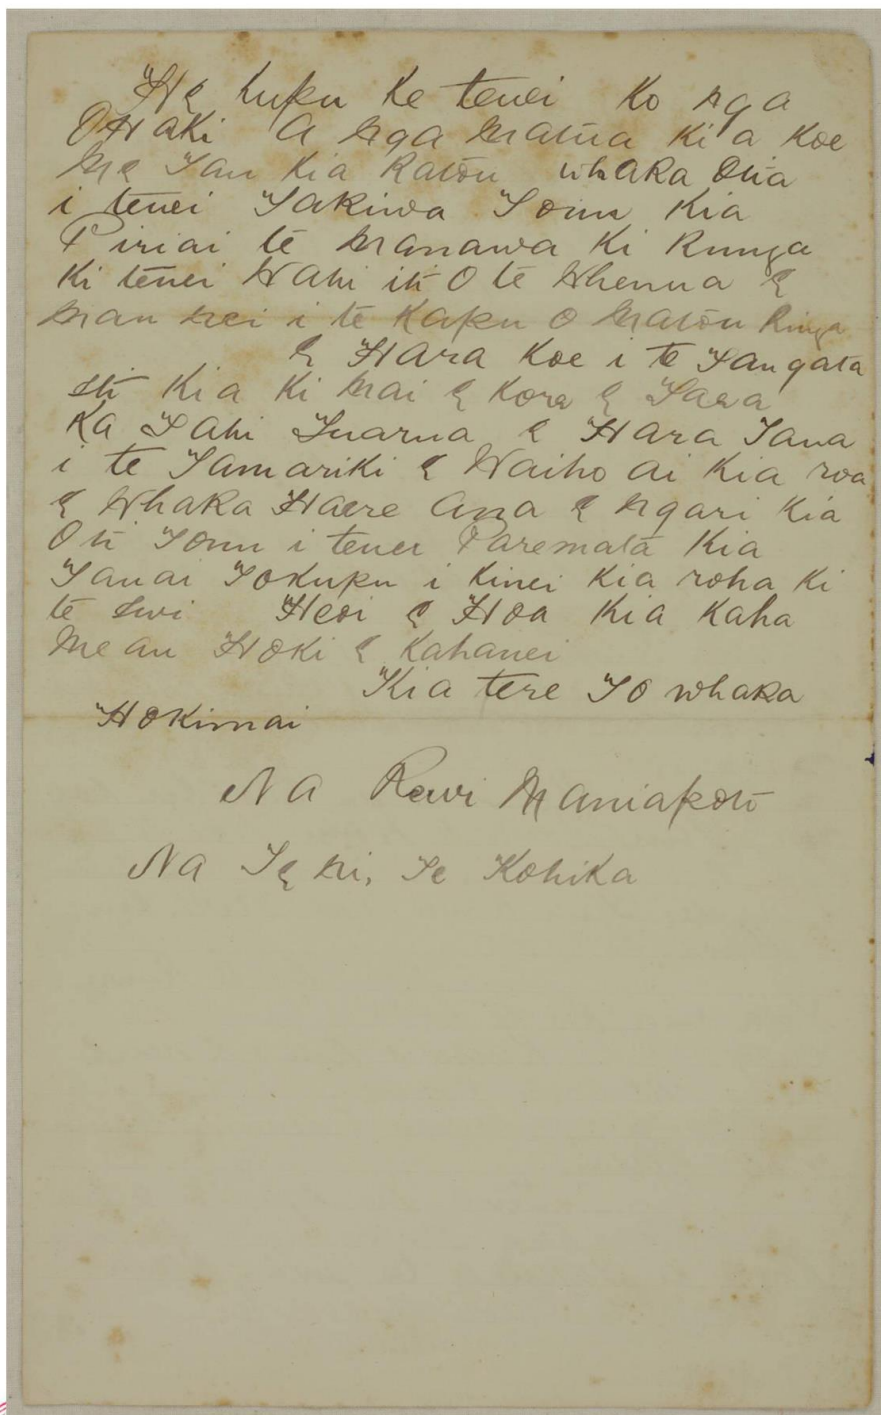 He kupu ke tenei ko nga
OHaki a Nga Matua Kia Koe
Me Tau Kia Ratou whaka Otia
i tenei Takiwa Tonu Kia
Piriai te Manawa Ki Runga
Ki tenei Wahi iti O te Whenua E
Mau nei i te Kapu O Matou Ringa
E Hara Koe i te Tangata
iti Kia Ki Mai E Kore E Taea
Ka Tahi Tuarua E Hara Tana
i te Tamariki E Waiho ai Kia roa
E Whaka Haere Ana E Ngari Kia
Oti Tonu i tenei Paremata Kia
Tauai Tokupu i Kinei Kia roha Ki
te Iwi Heoi E Hoa Kia Kaha
Me au Hoki E Kahanei
Kia tere To whaka
Hokimai
Na Rewi Maniapoto
Na Te Ni, Te Kohika